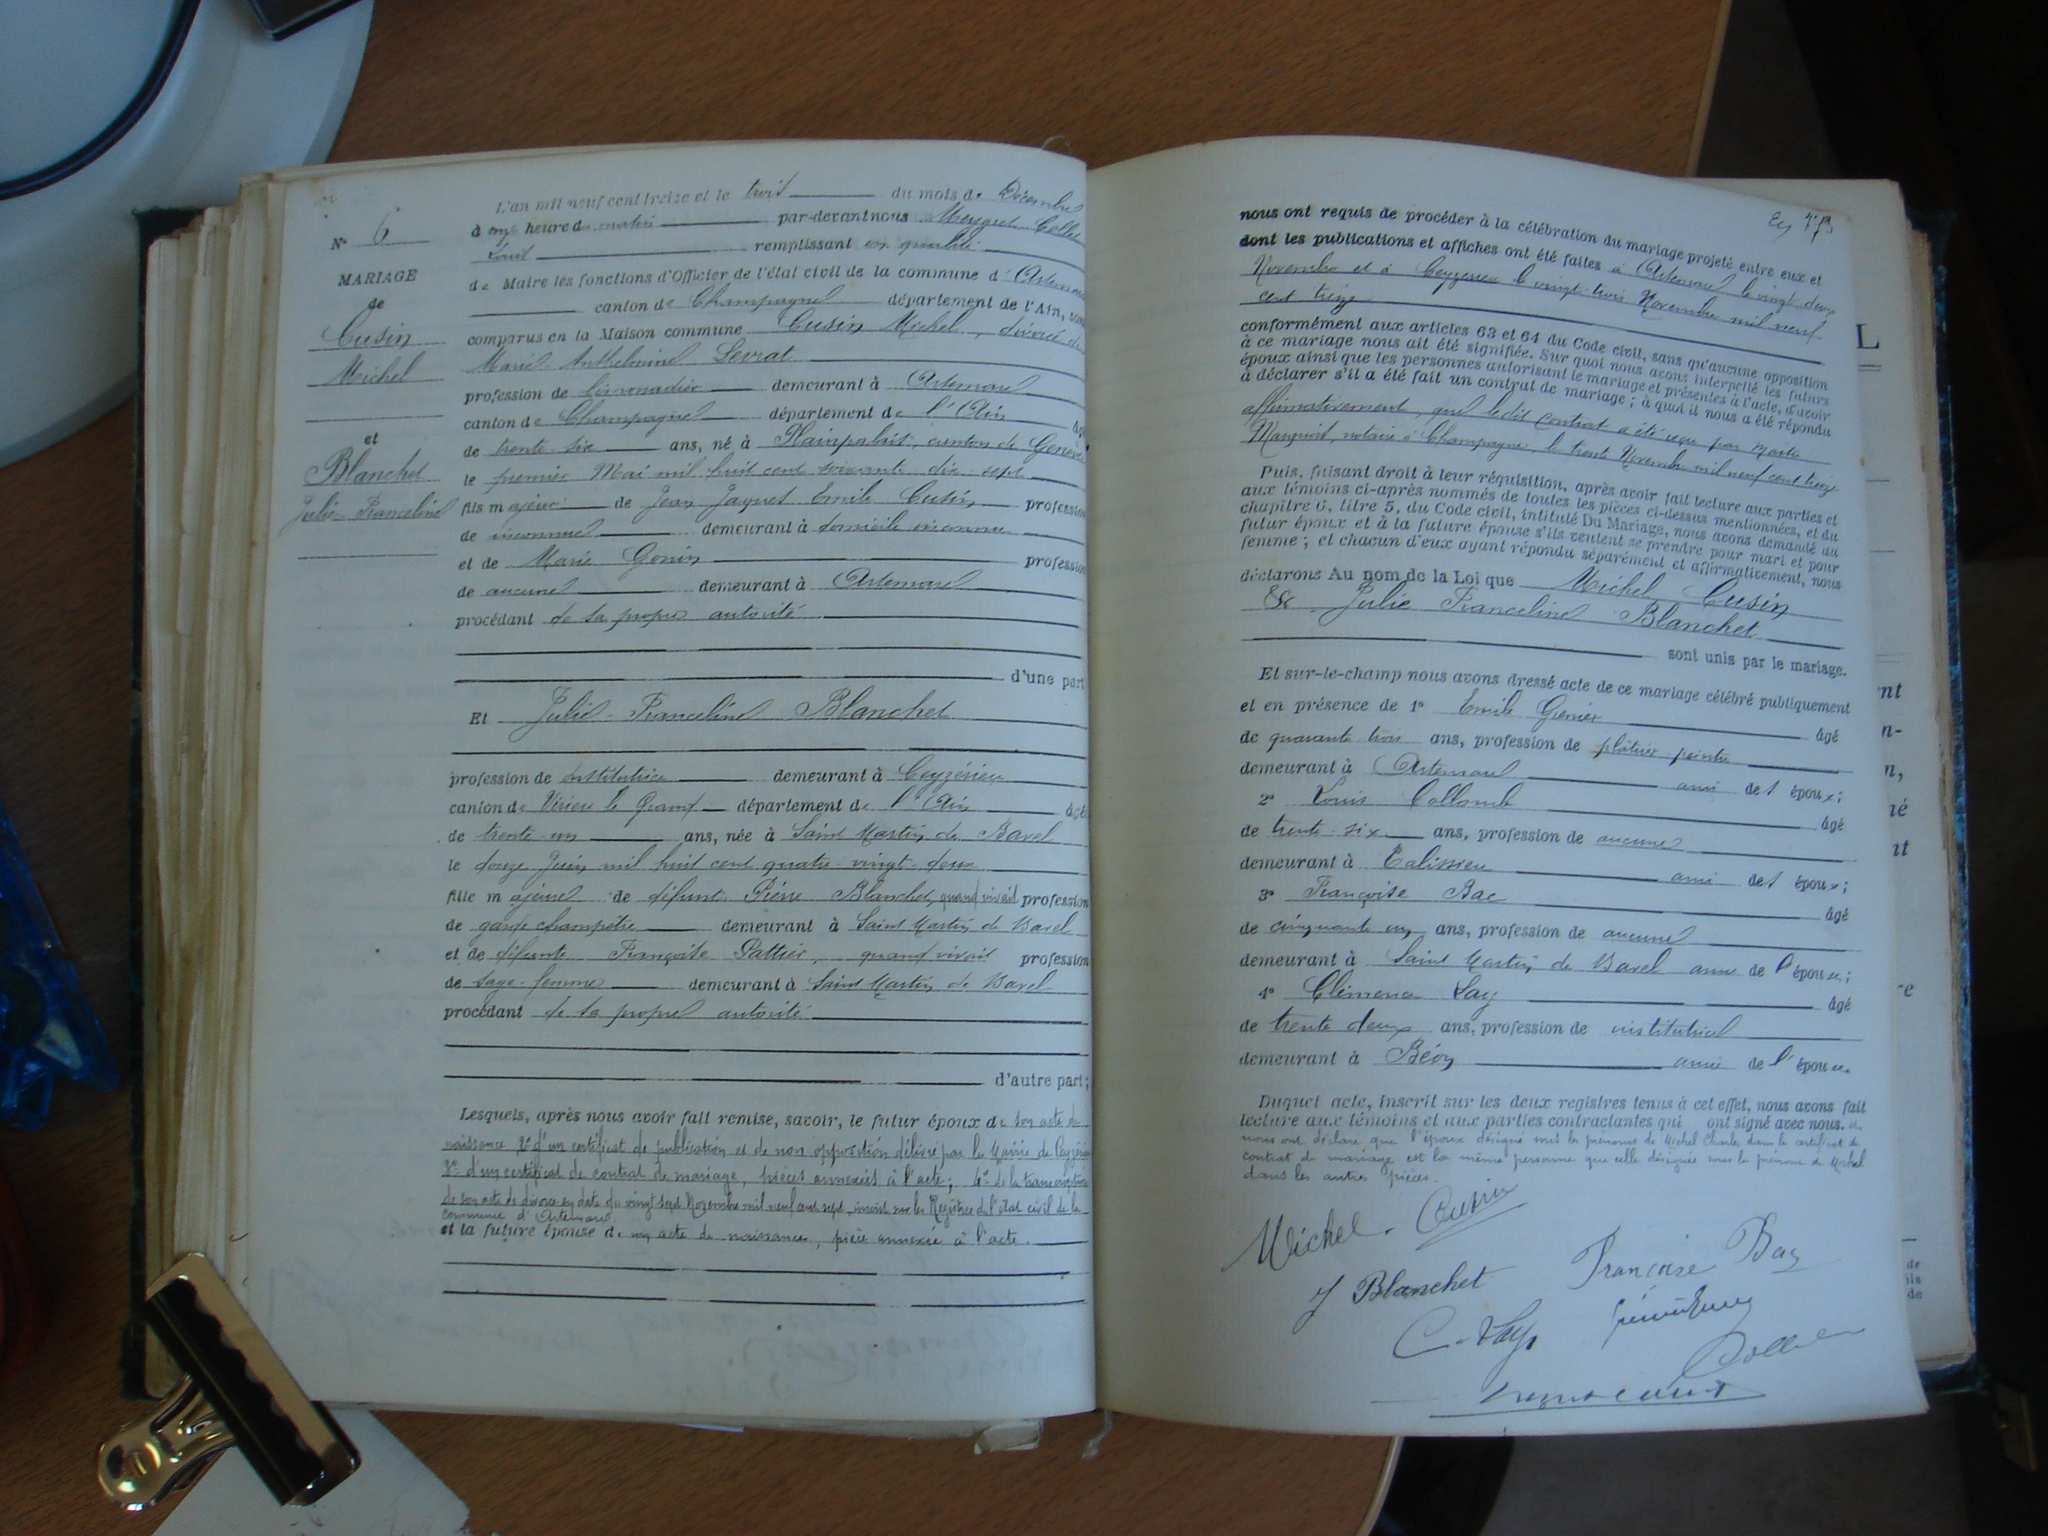 Nº 6
MARIAGE
de
Cusin
Michel
et
Blanchet
Julie Franceline
L'an mil neuf cent treize et le trois du mois de Décembre
à onze heures du matin par-devant nous
Louis remplissant en qualité
de Maire les fonctions d'Officier de l'état civil de la commune d'Artemare
canton de Champagne département de l'Ain, sont
comparus en la Maison commune Cusin Michel, divorcé de
Marie Anthelmine Levrat
profession de limonadier demeurant à Artemare
canton de Champagne département de l'Ain âgé
de trente-six ans, né à Plainpalais, canton de Genève
le premier Mai mil huit cent soixante dix-sept
fils majeur de Jean Jaques Emile Cusin profession
de inconnue demeurant à domicile inconnu
et de Marie Gonin profession
de aucune demeurant à Artemare
procédant de sa propre autorité
d'une part
Et Julie-Franceline Blanchet
profession de institutrice demeurant à Ceyzérieu
canton de Virieu le Grand département de l'Ain âgée
de trente-un ans, née à Saint Martin de Bavel
le douze Juin mil huit cent quatre-vingt-deux
fille majeure de défunt Pierre Blanchet, quand vivait profession
de garde champêtre demeurant à Saint Martin de Bavel
et de défunte Françoise Pattier, quand vivait profession
de sage-femme demeurant à Saint Martin de Bavel
procédant de sa propre autorité
d'autre part;
Lesquels, après nous avoir fait remise, savoir, le futur époux de son acte de
naissance, 2º d'un certificat de publication et de non opposition délivré par la Mairie de Ceyzérieu
3º d'un certificat de contrat de mariage, pièces annexées à l'acte; 4º de la transcription
de son acte de divorce en date du vingt sept Novembre mil neuf cent sept, inscrit sur les Registres de l'état civil de la
commune d'Artemare
et la future épouse de son acte de naissance, pièce annexée à l'acte.
nous ont requis de procéder à la célébration du mariage projeté entre eux et
dont les publications et affiches ont été faites à Artemare le vingt deux
Novembre et à Ceyzérieu le vingt-trois Novembre mil neuf
cent treize
conformément aux articles 63 et 64 du Code civil, sans qu'aucune opposition
à ce mariage nous ait été signifiée. Sur quoi nous avons interpellé les futurs
époux ainsi que les personnes autorisant le mariage et présentes à l'acte, d'avoir
à déclarer s'il a été fait un contrat de mariage; à quoi il nous a été répondu
affirmativement, que ledit contrat a été reçu par maître
notaire à Champagne, le trente Novembre mil neuf cent treize
Puis, faisant droit à leur réquisition, après avoir fait lecture aux parties et
aux témoins ci-après nommés de toutes les pièces ci-dessus mentionnées, et du
chapitre 6, titre 5, du Code civil, intitulé Du Mariage, nous avons demandé du
futur époux et à la future épouse s'ils veulent se prendre pour mari et pour
femme; et chacun d'eux ayant répondu séparément et affirmativement, nous
déclarons Au nom de la Loi que Michel Cusin
& Julie Franceline Blanchet
sont unis par le mariage.
Et sur-le-champ nous avons dressé acte de ce mariage célébré publiquement
et en présence de 1º Emile Genier âgé
de quarante trois ans, profession de plâtrier-peintre
demeurant à Artemare ami des époux;
2º Louis Collomb âgé
de trente-six ans, profession de aucune
demeurant à Talissieu ami des époux;
3º Françoise Bac âgé
de cinquante un ans, profession de aucune
demeurant à Saint Martin de Bavel amie de l'épouse;
4º Clémence Lay âgé
de trente deux ans, profession de institutrice
demeurant à Béon amie de l'épouse.
Duquel acte, inscrit sur les deux registres tenus à cet effet, nous avons fait
lecture aux témoins et aux parties contractantes qui ont signé avec nous. Ils
nous ont déclaré que l'époux désigné sous les prénoms de Michel Charles dans le certificat de
contrat de mariage est la même personne que celle désignée sous le prénom de Michel
dans les autres pièces.
Michel Cusin
J Blanchet Françoise Bac
C. Lay